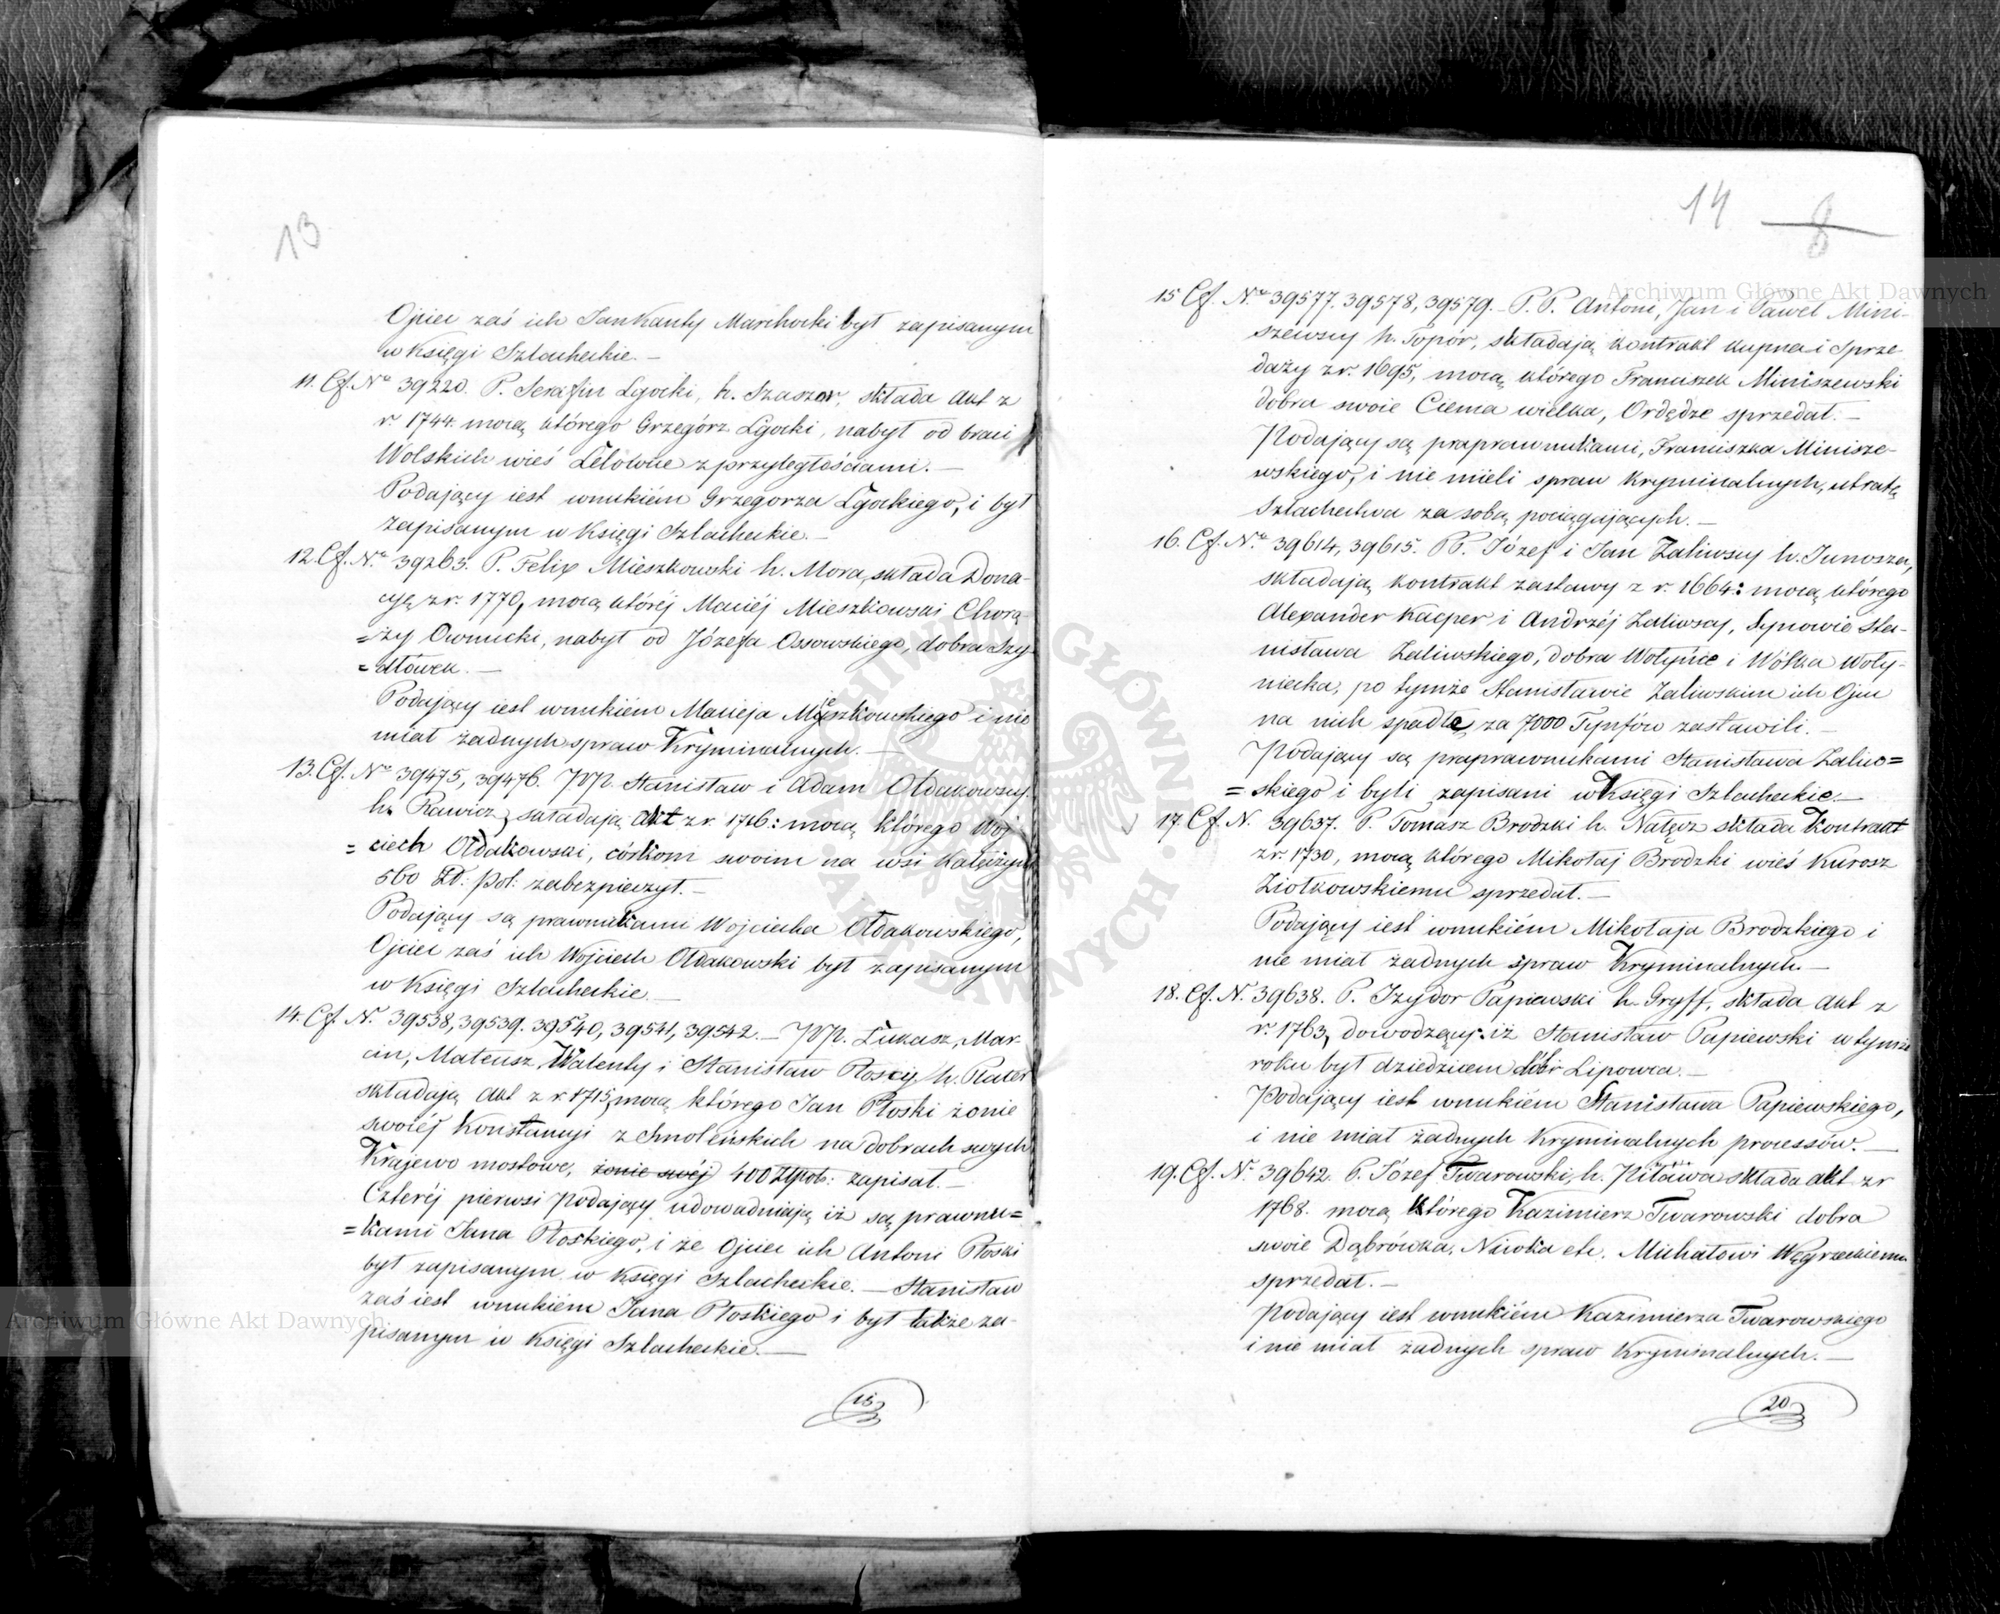 13
Ojciec zaś ich Jan Kanty Marchocki był zapisanym
w Księgi Szlacheckie. —
11. Cf. Nr 39220. P. Serafin Lgocki, h. składa Akt z
r. 1744. mocą którego Grzegórz Lgocki, nabył od braci
Wolskich wieś Lelowice z przyległościami. —
Podający iest wnukiém Grzegorza Lgockiego, i był
zapisanym w Księgi Szlacheckie. —
12. Cf. Nr 39263. P. Felix Mieszkowski h. Mora, składa Dona-
cyą z r. 1770, mocą któréj Maciéj Mieszkowski Chorą-
=ży Owrucki, nabył od Józefa Ossowskiego, dobra Szy-
=dłówek. —
Podający iest wnukiém Macieja Myszkowskiego i nie
miał żadnych spraw Kryminalnych. —
13. Cf. Nr 39475, 39476. WPP. Stanisław i Adam Ołdakowscy
h. Rawicz, składają Akt z r. 1716: mocą którego Woj-
= ciech Ołdakowski, córkom swoim na wsi
560 Zł: pol: zabezpieczył. —
Podający są prawnukami Wojciecha Ołdakowskiego,
Ojciec zaś ich Wojciech Ołdakowski był zapisanym
w Księgi Szlacheckie. —
14. Cf. N. 39538, 39539. 39540, 39541, 39542. — WPP. Łukasz, Mar-
cin, Mateusz, Walenty i Stanisław Płoscy, h.
składają Akt z r. 1715, mocą którego Jan Płoski żonie
swoiéj Konstancyi z Smoleńskich na dobrach swych
Krajewo mostowe, żonie swéj 400 Złpols: zapisał. —
Czteréj pierwsi Podający udowadniają iż są prawnu=
=kami Jana Płoskiego, i że Ojciec ich Antoni Płoski
był zapisanym w Księgi Szlacheckie. — Stanisław
zaś iest wnukiém Jana Płoskiego i był także za-
pisanym w Księgi Szlacheckie. —
14 8
15 Cf. Nr 39577. 39578, 39579. P. P. Antoni, Jan i Paweł Mini-
szewscy h. Topór, składają kontrakt kupna i Sprze
daży z r. 1695, mocą którego Franciszek Miniszewski
dobra swoie Ciema wielka, Ordędze sprzedał. —
Podający są praprawnukami, Franciszka Minisze-
wskiego, i nie mieli spraw Kryminalnych, utratę
Szlachectwa za sobą pociągających. —
16. Cf. Nr 39614, 39615. PP. Józef i Jan Zaliwscy h. Junosza,
składają kontrakt zastawy z r. 1664: mocą którego
Alexander Kacper i Andrzéj Zaliwscy, Synowie Sta-
nisława Zaliwskiego, dobra Wołyńce i Wólka Woły-
niecka, po tymże Stanisławie Zaliwskim ich Ojcu
na nich spadłe, za 7000 Tynfów zastawili. —
Podający są praprawnukami Stanisława Zaliw=
= skiego i byli zapisani w Księgi Szlacheckie. —
17. Cf. N. 39637. P. Tomasz Brodzki h. Nałęcz składa Kontrakt
z r. 1730, mocą którego Mikołaj Brodzki wieś Kurosz
Ziołkowskiemu sprzedał. —
Podający iest wnukiém Mikołaja Brodzkiego i
nie miał żadnych spraw Kryminalnych. —
18. Cf. N. 39638. P. Izydor Papiewski h. Gryff, składa Akt z
r. 1763, dowodzący: iż Stanisław Papiewski w tymże
roku był dziedzicem dóbr Lipowca. —
Podający iest wnukiém Stanisława Papiewskiego,
i nie miał żadnych Kryminalnych processów. —
19. Cf. N. 39642. P. Józef Twarowski, h. Pilawa składa akt z r
1768. mocą którego Kazimierz Twarowski dobra
swoie Dąbrówka, Niwka etc. Michałowi Węgrzeckiemu
sprzedał. —
Podający iest wnukiém Kazimierza Twarowskiego
i nie miał żadnych spraw Kryminalnych. —
20
Archiwum Główne Akt Dawnych
Archiwum Główne Akt Dawnych
ARCHIWUM GŁÓWNE AKT DAWNYCH